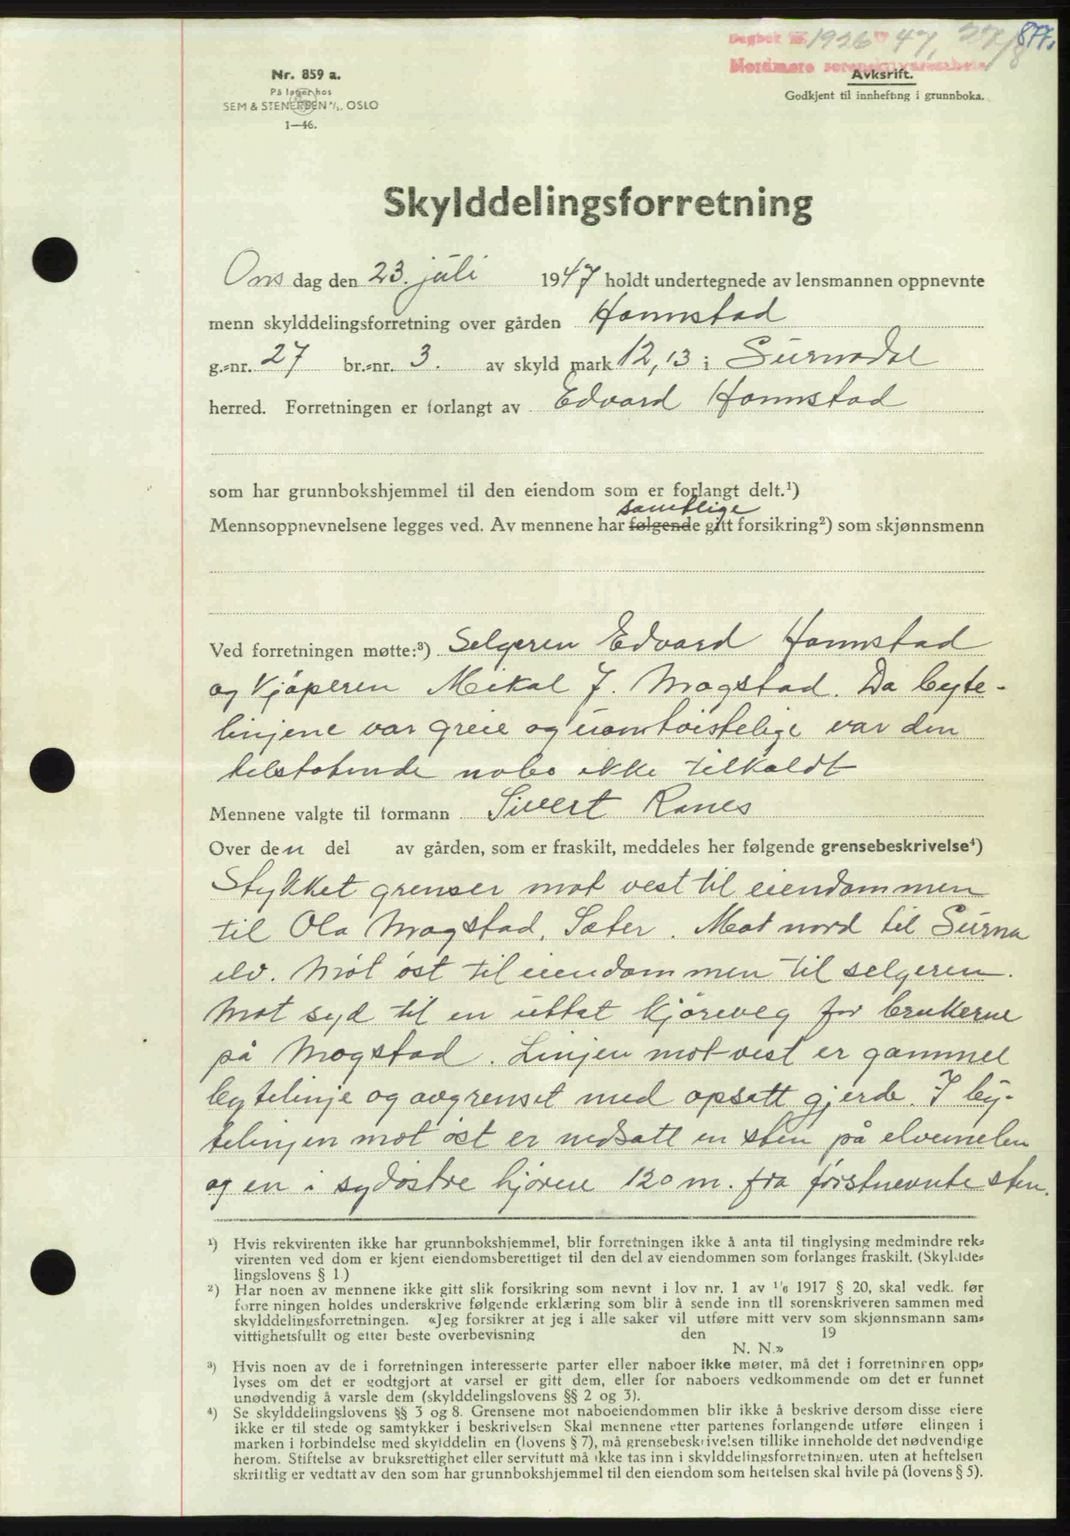 877.
Dagbok nr. 1926 19 47, 27/8
Nordmøre sorenskriverembete
Nr. 859 a.
På lager hos
SEM & STENERSEN A/S. OSLO
1—46.
Avkskrift.
Godkjent til innhefting i grunnboka.
Skylddelingsforretning
Onsdag den 23. juli 1947 holdt undertegnede av lensmannen oppnevnte
menn skylddelingsforretning over gården Hamnstad
g.-nr. 27 br.-nr. 3. av skyld mark 12,13 i Surnadal
herred. Forretningen er forlangt av Edvard Hamnstad
som har grunnbokshjemmel til den eiendom som er forlangt delt.¹)
samtlige
Mennsoppnevnelsene legges ved. Av mennene har følgende gitt forsikring²) som skjønnsmenn
Ved forretningen møtte:³) Selgeren Edvard Hamnstad
og kjøperen Mikal J. Mogstad. Da byte-
linjene var greie og uomtvistelige var den
tilstøtende nabo ikke tilkaldt
Mennene valgte til formann Sivert Ranes
Over den del av gården, som er fraskilt, meddeles her følgende grensebeskrivelse⁴)
Stykket grenser mot vest til eiendommen
til Ola Mogstad, Sæter. Mot nord til Surna
elv. Mot øst til eiendommen til selgeren.
Mot syd til en uttat kjøreveg for brukerne
på Mogstad. Linjen mot vest er gammel
bytelinje og avgrenset med opsatt gjerde. I by-
telinjen mot øst er nedsatt en sten på elvemelen
og en i sydøstre hjørne 120 m. fra førstnevnte sten.
¹) Hvis rekvirenten ikke har grunnbokshjemmel, blir forretningen ikke å anta til tinglysing medmindre rek-
virenten ved dom er kjent eiendomsberettiget til den del av eiendommen som forlanges fraskilt. (Skyldde-
lingslovens § 1)
²) Har noen av mennene ikke gitt slik forsikring som nevnt i lov nr. 1 av 1/6 1917 § 20, skal vedk. før
forretningen holdes underskrive følgende erklæring som blir å sende inn til sorenskriveren sammen med
skylddelingsforretningen. «Jeg forsikrer at jeg i alle saker vil utføre mitt verv som skjønnsmann sam-
vittighetsfullt og etter beste overbevisning den 19
N. N.»
³) Hvis noen av de i forretningen interesserte parter eller naboer ikke møter, må det i forretningen opp-
lyses om det er godtgjort at varsel er gitt dem, eller for naboers vedkommende om det er funnet
unødvendig å varsle dem (skylddelingslovens §§ 2 og 3).
⁴) Se skylddelingslovens §§ 3 og 8. Grensene mot naboeiendommen blir ikke å beskrive dersom disse eiere
ikke er til stede og samtykker i beskrivelsen Skal mennene etter partenes forlangende utføre elingen i
marken i forbindelse med skylddelin en (lovens § 7), må grensebeskrivelsen tillike inneholde det nødvendige
herom. Stiftelse av bruksrettighet eller servitutt må ikke tas inn i skylddelingsforretningen, uten at heftelsen
skriftlig er vedtatt av den som har grunnbokshjemmel til den eiendom som heftelsen skal hvile på (lovens § 5).